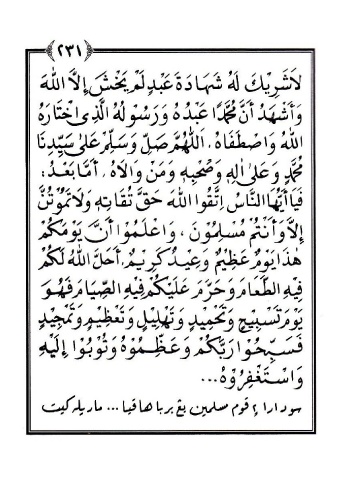 ﴿٢٣١﴾
لَا شَرِيْكَ لَهُ شَهَادَةَ عَبْدٍ لَمْ يَخْشَ إِلَّا اللّٰهَ
وَأَشْهَدُ أَنَّ مُحَمَّدًا عَبْدُهُ وَرَسُوْلُهُ الَّذِى اخْتَارَهُ
اللّٰهُ وَاصْطَفَاهُ. اَللّٰهُمَّ صَلِّ وَسَلِّمْ عَلَى سَيِّدِنَا
مُحَمَّدٍ وَعَلَى اٰلِهِ وَصَحْبِهِ وَمَنْ وَالَاهُ. أَمَّا بَعْدُ:
فَيَا أَيُّهَا النَّاسُ اِتَّقُوا اللّٰهَ حَقَّ تُقَاتِهِ وَلَا تَمُوْتُنَّ
إِلَّا وَأَنْتُمْ مُسْلِمُوْنَ. وَاعْلَمُوْا أَنَّ يَوْمَكُمْ
هٰذَا يَوْمٌ عَظِيْمٌ وَعِيْدٌ كَرِيْمٌ. أَحَلَّ اللّٰهُ لَكُمْ
فِيْهِ الطَّعَامَ وَحَرَّمَ عَلَيْكُمْ فِيْهِ الصِّيَامَ فَهُوَ
يَوْمُ تَسْبِيْحٍ وَتَحْمِيْدٍ وَتَهْلِيْلٍ وَتَعْظِيْمٍ وَتَمْجِيْدٍ
فَسَبِّحُوْا رَبَّكُمْ وَعَظِّمُوْهُ وَتُوْبُوْا إِلَيْهِ
وَاسْتَغْفِرُوْهُ...
سودارا٢ قوم مسلمين يڠ برباهاݢيا... ماريله كيت